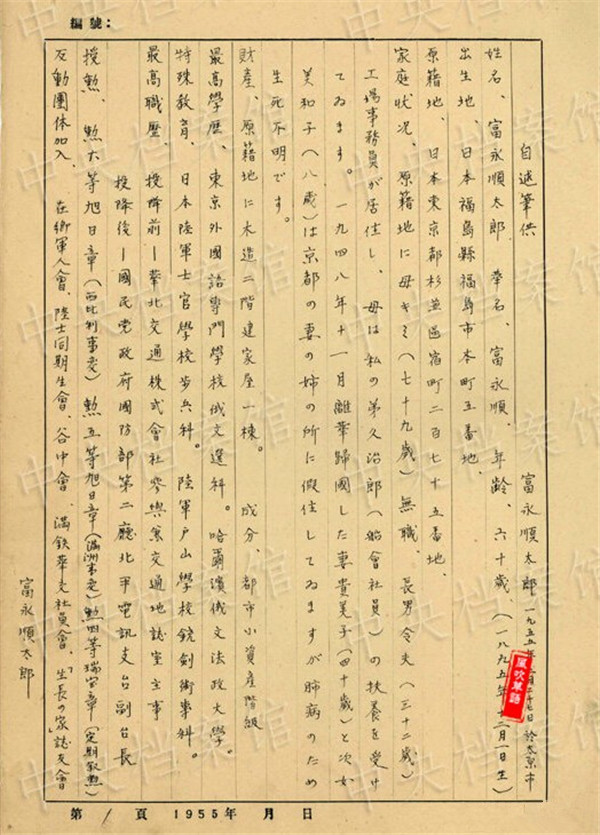 編號:
自述筆供
富永順太郎 一九五五年 月二十七日 於太原市
姓名、富永順太郎 華名、富永順 年齡、六十歲、(一八九五年十二月一日生)
出生地、日本福島縣福島市本町五番地。
原籍地、日本東京都杉並區宿町二百七十五番地、
家庭狀况、原籍地に母キミ(七十九歲)無職、長男令夫(三十二歲)
工場事務員が居住し、母は私の弟久治郎(船會社員)の扶養を受け
てゐます。一九四八年十一月離華歸國した妻貴美子(四十歲)と次女
美和子(八歲)は京都の妻の姉の所に假住してゐますが肺病のため
生死不明です。
財產、原籍地に木造二階建家屋一棟。 成分、都市小資産階級
最高學歷、東京外國語專門學校俄文選科。哈爾濱俄文法政大學。
特殊教育、日本陸軍士官學校步兵科。陸軍戶山學校銃劍術專科。
最高職歷、投降前—華北交通株式會社參與兼交通地誌室主事
投降後—國民党政府國防部第二廳北平電訊支台副台長
授勲、勲六等旭日章(西比利事変)勲五等旭日章(滿洲事変)勲四等瑞宝章(定期叙勲)
反動團体加入、在鄉軍人會、陸士同期生會、谷中會、滿鉄華交社員會、「生長の家」誌友會
富永順太郎
風吹草語
第 1 頁 1955年 月 日
中央档案馆